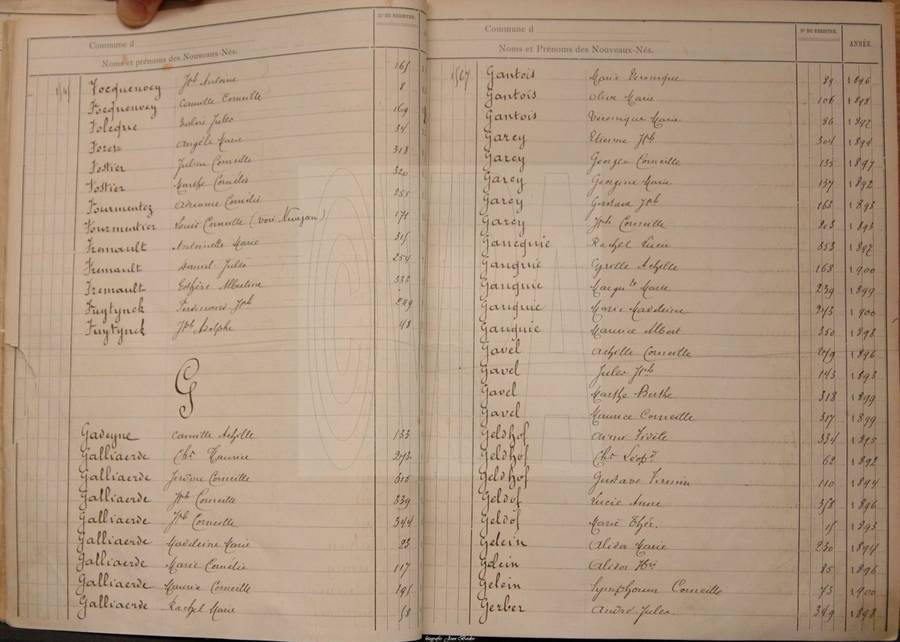 Nº DU REGISTRE.
Commune d
Noms et prénoms des Nouveaux-Nés.
Focquenoey Jph Antoine 165
Focquenoey Camille Corneille 8
Folecque Jules 169
Angèle Marie 34
Fostier Julien Corneille 318
Fostier Marthe Cornélie 320
Fourmentez Adrienne Cornélie 255
Fourmentier Louis Corneille (voir 171
Fremault Antoinette Marie 315
Fremault Daniel Jules 254
Fremault Albertine
Fuytynck Ferdinand Jph 249
Fuytynck Jph Adolphe 48
G
Gadeyne Camille Achille 133
Galliaerde Chs Maurice
Galliaerde Jérôme Corneille 315
Galliaerde Jph Corneille 339
Galliaerde Jph Corneille 344
Galliaerde Madeleine Marie 23
Galliaerde Marie Cornélie 117
Galliaerde Maurice Corneille 191
Galliaerde Rachel Marie
Nº DU REGISTRE. ANNÉE.
Commune d
Noms et Prénoms des Nouveaux-Nés.
Gantois Marie Véronique 89 1896
Gantois Olive Marie 106 1898
Gantois Véronique Marie 86 1892
Garey Etienne Jph 304 1894
Garey Georges Corneille 135 1897
Garey Georgine Marie 137 1892
Garey Gustave Jph 163 1893
Garey Jph Corneille 1893
Rachel 353 1892
Gauquie Cyrille Achille 168 1900
Gauquie Marguite Marie 239 1899
Gauquie Marie Madeleine 1900
Gauquie Maurice Albert 350 1898
Gavel Achille Corneille 1896
Gavel Jules Jph 143 1893
Gavel Marthe Berthe 318 1899
Gavel Maurice Corneille 317 1899
Geldhof Aimé Fidèle 334 1895
Geldhof Chs Léopd 62 1892
Geldhof Gustave Firmin 110 1894
Geldof Lucie Anne 1896
Geldof Marie Thér. 1893
Gelein Alida Marie 230 1894
Gelein 85 1896
Gelein Symphorien Corneille 1900
Gerber André Jules 349 1898